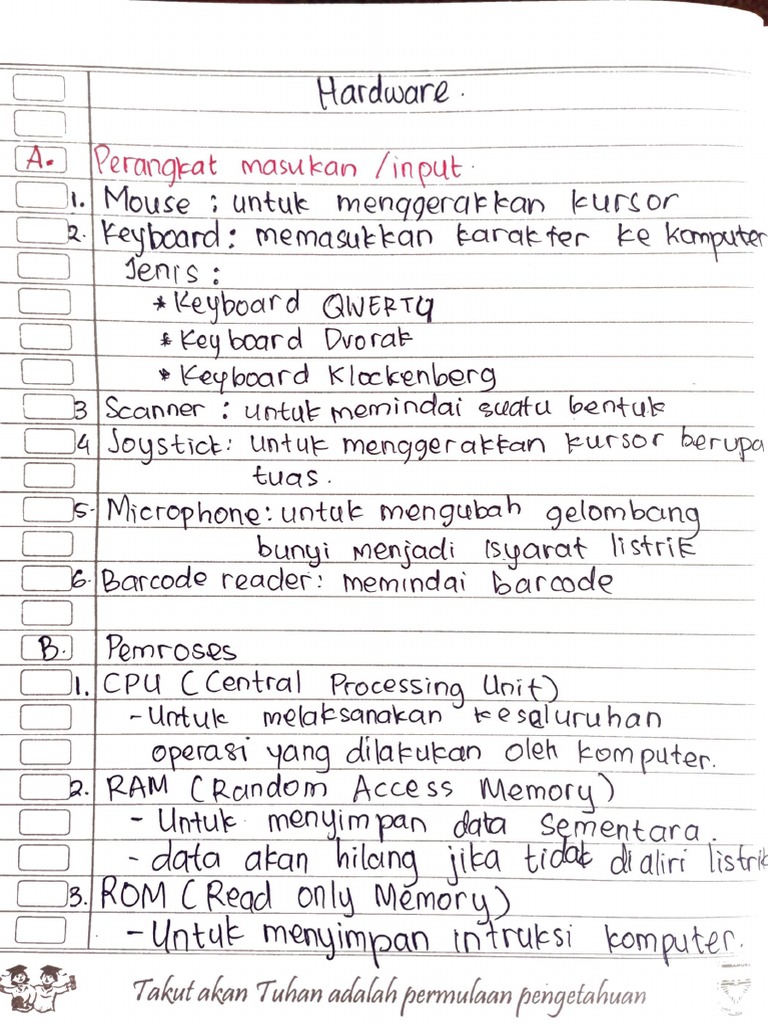 Hardware.
A. Perangkat masukan /input.
1. Mouse : untuk menggerakkan kursor
2. Keyboard : memasukkan karakter ke komputer
Jenis :
* Keyboard QWERTY
* Keyboard Dvorak
* Keyboard Klockenberg
3 Scanner : untuk memindai suatu bentuk
4 Joystick : untuk menggerakkan kursor berupa
tuas.
5. Microphone : untuk mengubah gelombang
bunyi menjadi isyarat listrik
6. Barcode reader : memindai barcode
B. Pemroses
1. CPU (Central Processing Unit)
- Untuk melaksanakan keseluruhan
operasi yang dilakukan oleh komputer.
2. RAM (Random Access Memory)
- Untuk menyimpan data sementara.
- data akan hilang jika tidak dialiri listrik
3. ROM (Read only Memory)
- Untuk menyimpan intruksi komputer.
Takut akan Tuhan adalah permulaan pengetahuan